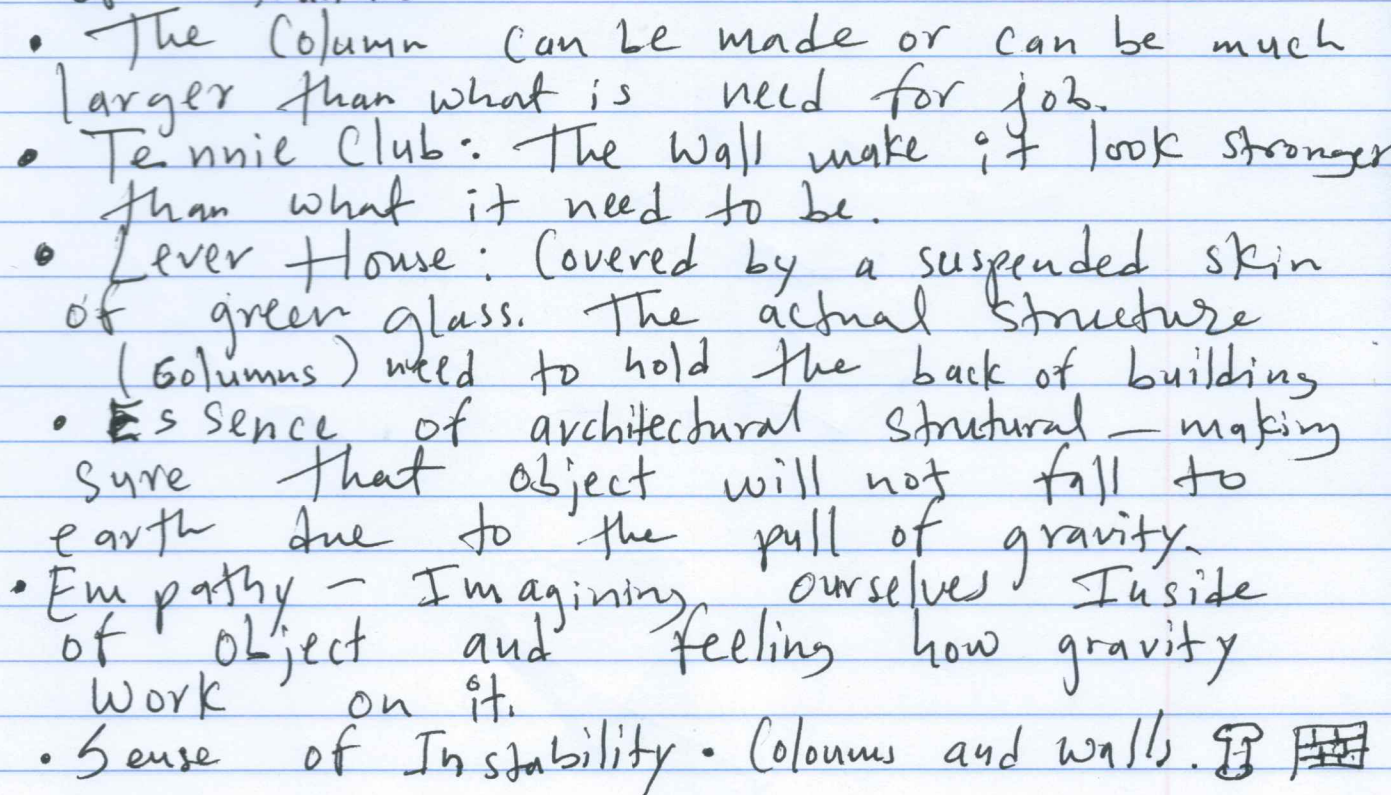 • The Column can be made or can be much
larger than what is need for job.
• Tennie Club: The wall make it look stronger
than what it need to be.
• Lever House: Covered by a suspended skin
of green glass. The actual structure
(Columns) need to hold the back of building
• Essence of architectural strutural – making
sure that object will not fall to
earth due to the pull of gravity.
• Empathy – Imagining ourselves Inside
of object and feeling how gravity
work on it.
• Sense of Instability. Coloums and walls.